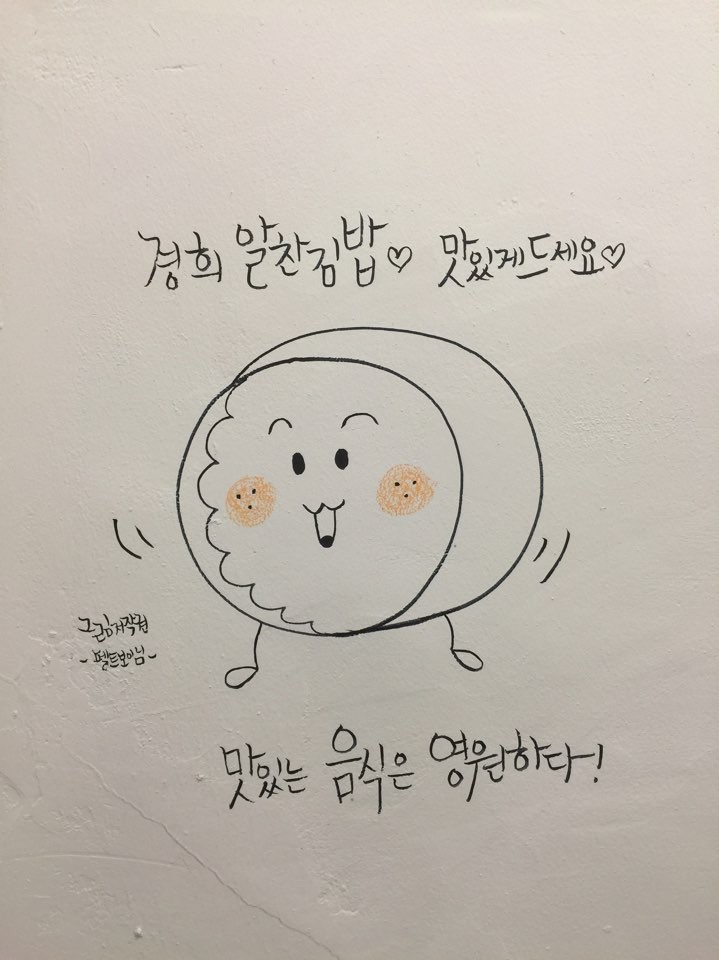 경희 알찬김밥♡ 맛있게드세요♡
그림저작권
-펠트보이님-
맛있는 음식은 영원하다!